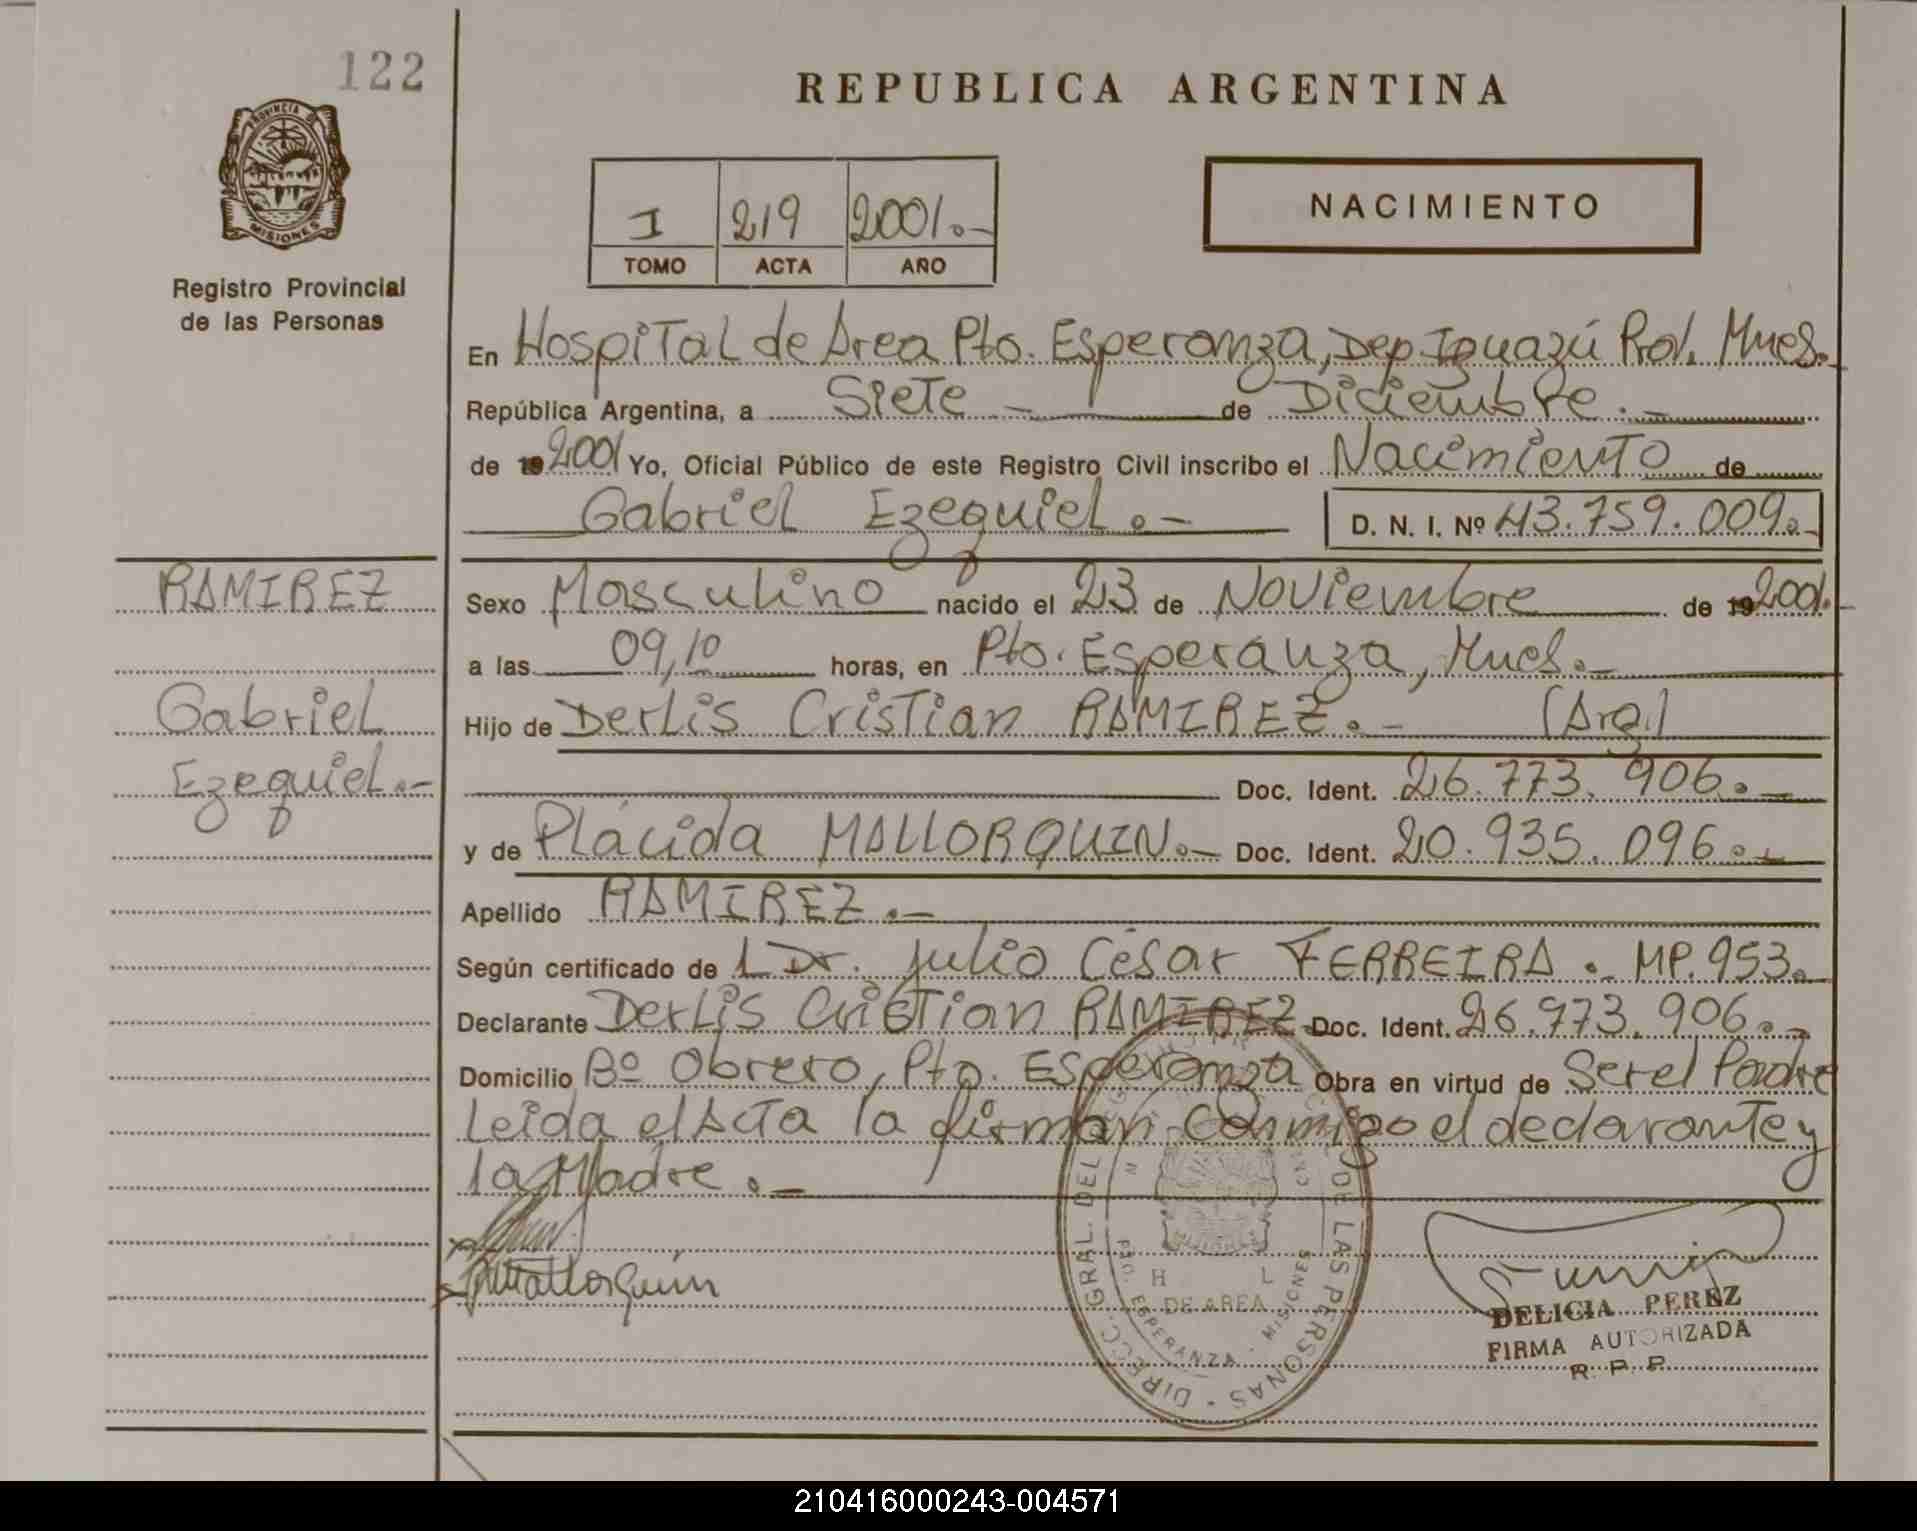 122
REPUBLICA ARGENTINA
PROVINCIA DE
MISIONES
Registro Provincial
de las Personas
I 219 2001.-
TOMO ACTA AÑO
NACIMIENTO
En Hospital de Area Pto. Esperanza, Dep. Iguazú Mnes.-
República Argentina, a Siete - de Diciembre.-
de 19 2001 Yo, Oficial Público de este Registro Civil inscribo el Nacimiento de
Gabriel Ezequiel.- D. N. I. Nº 43.759.009.-
RAMIREZ
Gabriel
Ezequiel.-
Sexo Masculino nacido el 23 de Noviembre de 19 2001.-
a las 09,10 horas, en Pto. Esperanza, Mnes.-
Hijo de Derlis Cristian RAMIREZ.- (Arg.)
Doc. Ident. 26.773.906.-
y de Plácida MALLORQUIN.- Doc. Ident. 20.935.096.-
Apellido RAMIREZ.-
Según certificado de 1 Dr. Julio César FERREIRA.- MP.953.-
Declarante Derlis Cristian RAMIREZ Doc. Ident. 26.973.906.-
Domicilio Bº Obrero, Pto. Esperanza Obra en virtud de Ser el Padre
Leida el Acta la firman conmigo el declarante y
la Madre.-
Mallorquin
DIREC. GRAL. DEL DE LAS PERSONAS
H L
DE AREA
PTO. ESPERANZA - MISIONES
DELICIA PEREZ
FIRMA AUTORIZADA
R. P. P.
210416000243-004571